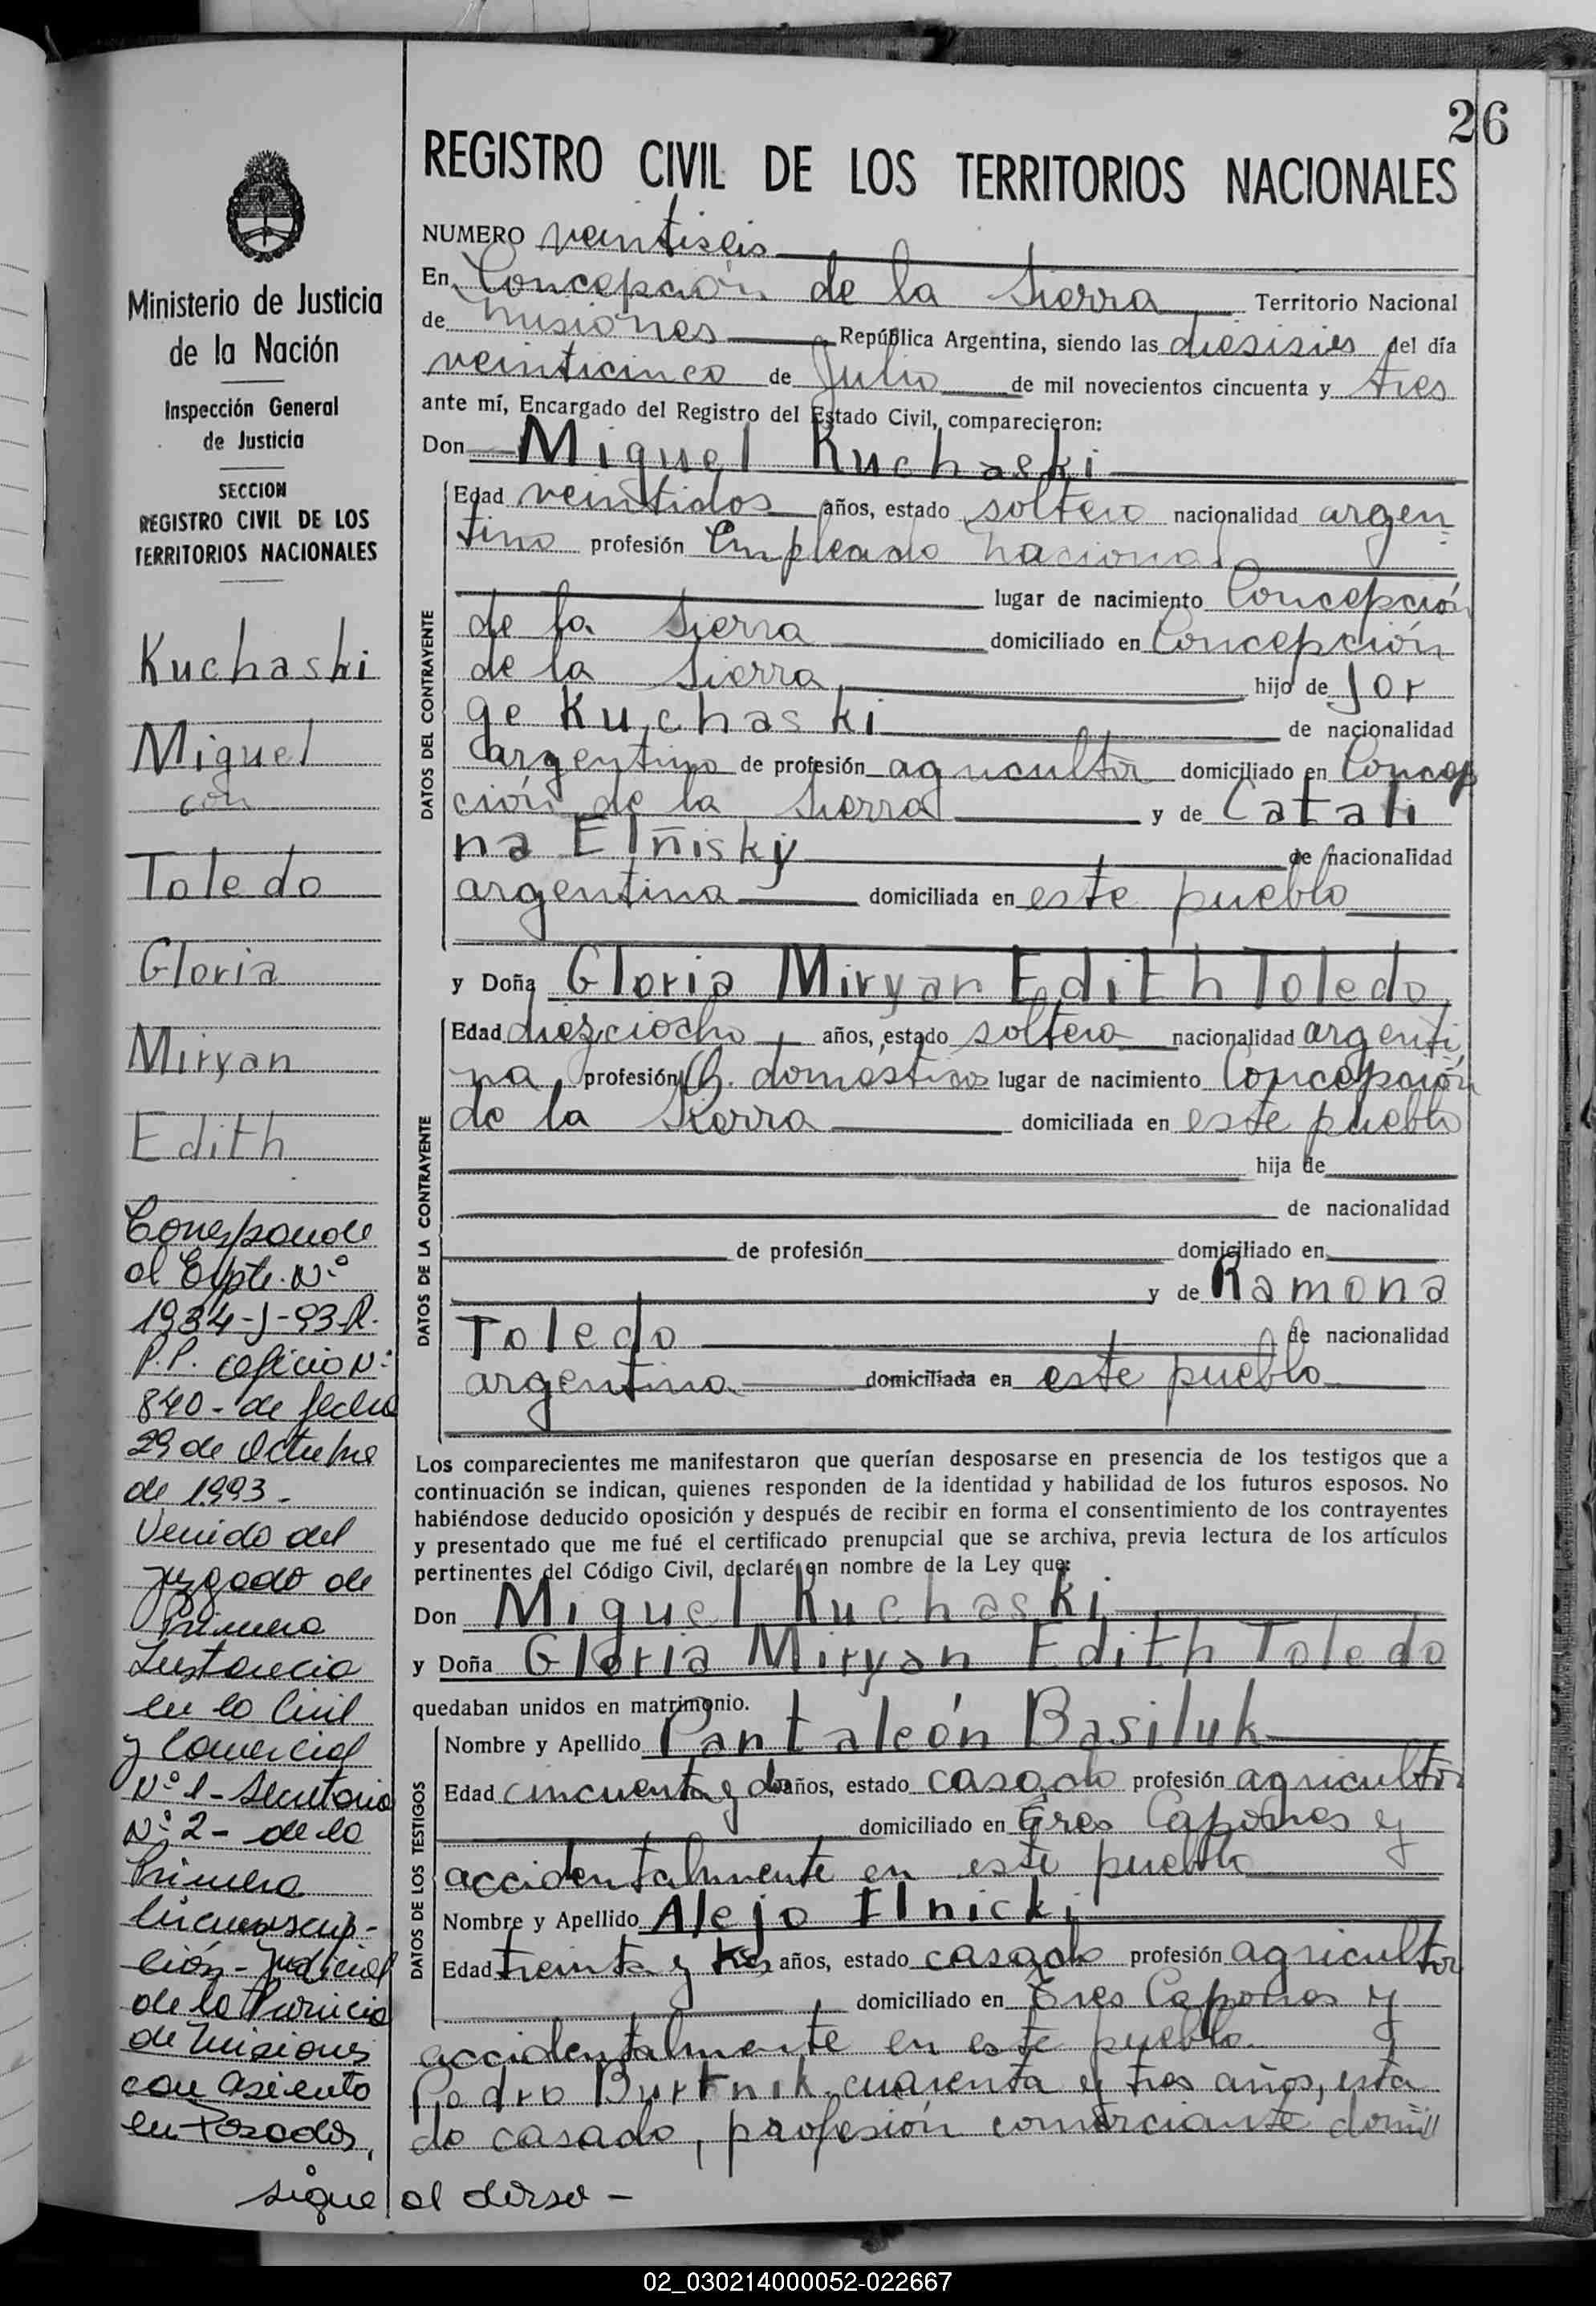 26
REGISTRO CIVIL DE LOS TERRITORIOS NACIONALES
NUMERO veintiseis
En Concepción de la Sierra Territorio Nacional
de Misiones República Argentina, siendo las diesiséis del día
veinticinco de Julio de mil novecientos cincuenta y tres
ante mí, Encargado del Registro del Estado Civil, comparecieron:
Don Miguel Kuchaski
DATOS DEL CONTRAYENTE
Edad veintidos años, estado soltero nacionalidad argen
tino profesión Empleado nacional
lugar de nacimiento Concepción
de la Sierra domiciliado en Concepción
de la Sierra hijo de Jor
ge Kuchaski de nacionalidad
argentino de profesión agricultor domiciliado en Concep
ción de la Sierra y de Catali
na Elñisky de nacionalidad
argentina domiciliada en este pueblo
y Doña Gloria Miryan Edith Toledo
DATOS DE LA CONTRAYENTE
Edad diezciocho años, estado soltera nacionalidad argenti
na profesión Q. domésticos lugar de nacimiento Concepción
de la Sierra domiciliada en este pueblo
hija de
de nacionalidad
de profesión domiciliado en
y de Ramona
Toledo de nacionalidad
argentina domiciliada en este pueblo
Los comparecientes me manifestaron que querían desposarse en presencia de los testigos que a
continuación se indican, quienes responden de la identidad y habilidad de los futuros esposos. No
habiéndose deducido oposición y después de recibir en forma el consentimiento de los contrayentes
y presentado que me fué el certificado prenupcial que se archiva, previa lectura de los artículos
pertinentes del Código Civil, declaré en nombre de la Ley que:
Don Miguel Kuchaski
y Doña Gloria Miryan Edith Toledo
quedaban unidos en matrimonio.
DATOS DE LOS TESTIGOS
Nombre y Apellido Pantaleón Basiluk
Edad cincuenta y dos años, estado casado profesión agricultor
domiciliado en Tres Capones y
accidentalmente en este pueblo
Nombre y Apellido Alejo Ilnicki
Edad treinta y tres años, estado casado profesión agricultor
domiciliado en Tres Capones y
accidentalmente en este pueblo y
Pedro Burtnik, cuarenta y tres años, esta
do casado, profesión comerciante domi
Ministerio de Justicia
de la Nación
Inspección General
de Justicia
SECCION
REGISTRO CIVIL DE LOS
TERRITORIOS NACIONALES
Kuchaski
Miguel
con
Toledo
Gloria
Miryan
Edith
Corresponde
al Expte. Nº
1934-J-93-R.
P.P. oficio Nº
840- de fecha
29 de Octubre
de 1993-
Venido del
Juzgado de
Primera
Instancia
en lo Civil
y Comercial
Nº 1- Secretaria
Nº 2- de la
Primera
Circunscrip-
ción- Judicial
de la Provincia
de Misiones
con asiento
en Posadas,
sigue al dorso -
02_030214000052-022667